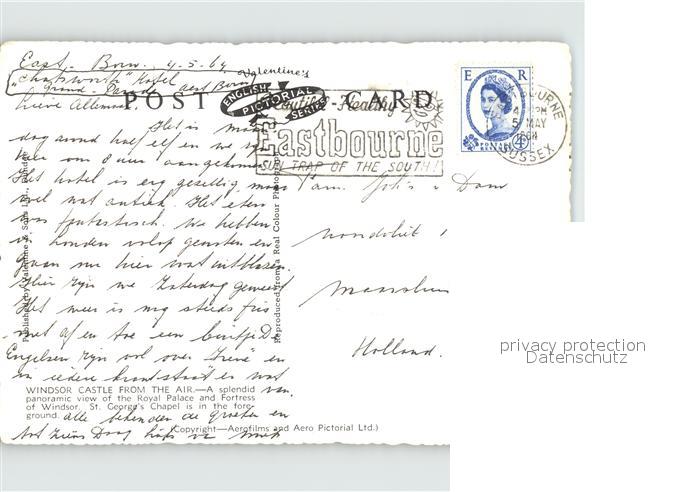 East-Born. 4-5-64
"Chatsworth" Hotel
"Grand-Parade" East Born
Lieve Allemaal
Valentine's
ENGLISH PICTORIAL SERIES
POST CARD
Beautiful Healthy
Eastbourne
SUN TRAP OF THE SOUTH!
E R
POSTAGE REVENUE
4D
EASTBOURNE
PM
5 MAY
1964
SUSSEX
Het is
dag avond half elf en we zijn
hier om 8 uur aangekomen
Het hotel is erg gezellig maar
wel wat antiek. Het eten
was fantastisch. We hebben
in Londen volop genoten en
gaan nu hier wat uitblazen.
Hier zijn we Zaterdag geweest
Het weer is nog steeds fris
met af en toe een buitje. De
Engelsen zijn vol over "Irene" en
in iedere krant staat er wat
van.
alle bekenden de groeten en
Tot ziens Daag
Fam. Joh's v Dam
Maassluis
Holland.
Published by Valentine & Sons Ltd., Dundee
Reproduced from a Real Colour Photograph
WINDSOR CASTLE FROM THE AIR.—A splendid
panoramic view of the Royal Palace and Fortress
of Windsor. St. George's Chapel is in the fore-
ground.
(Copyright—Aerofilms and Aero Pictorial Ltd.)
privacy protection
Datenschutz